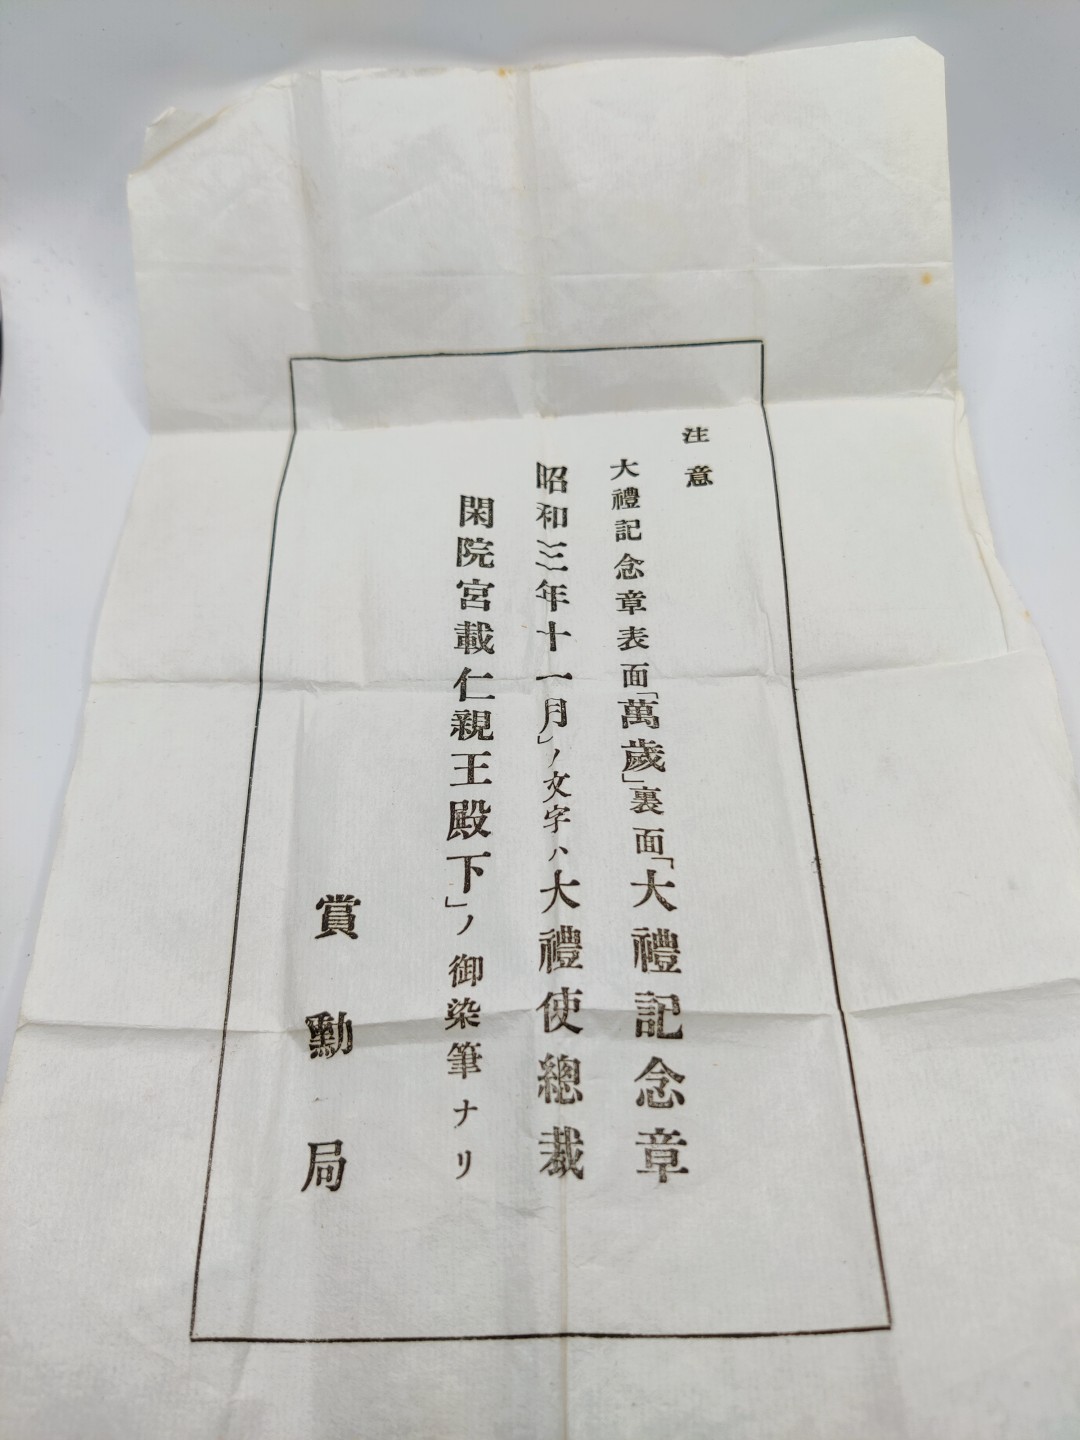 注意
大禮記念章表面「萬歲」裏面「大禮記念章
昭和三年十一月」ノ文字ハ大禮使總裁
閑院宮載仁親王殿下」ノ御染筆ナリ
賞勳局